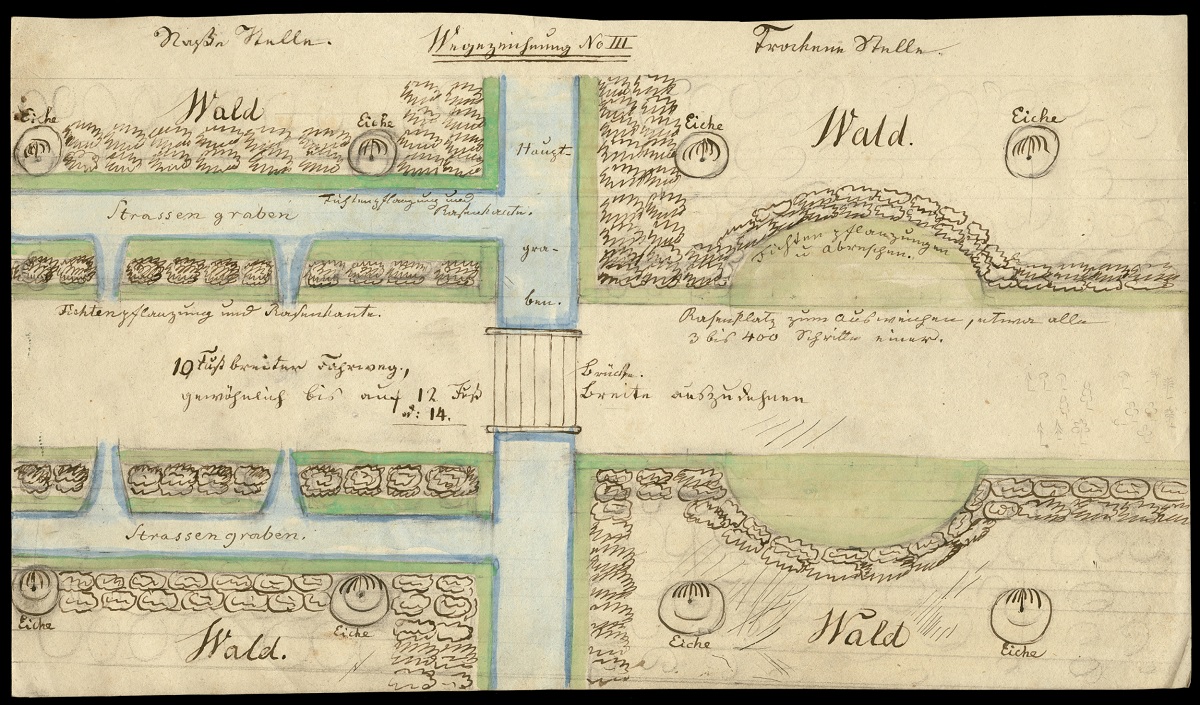 Naße Stelle.
Wegezeichnung No III
Trockene Stelle.
Eiche
Wald
Eiche
Haupt-
Eiche
Wald.
Eiche
Strassengraben
Fichtenpflanzung und
Rasenkante.
gra-
ben.
Fichtenpflanzungen
u
Fichtenpflanzung und Rasenkante.
Rasenplatz zum Ausweichen, etwa alle
3 bis 400 Schritte einer.
10 Fuß breiter Fahrweg,
gewöhnlich bis auf 12 Fuß
od: 14.
Brücke.
Breite auszudehnen
Strassengraben.
Eiche
Wald.
Eiche
Eiche
Wald
Eiche